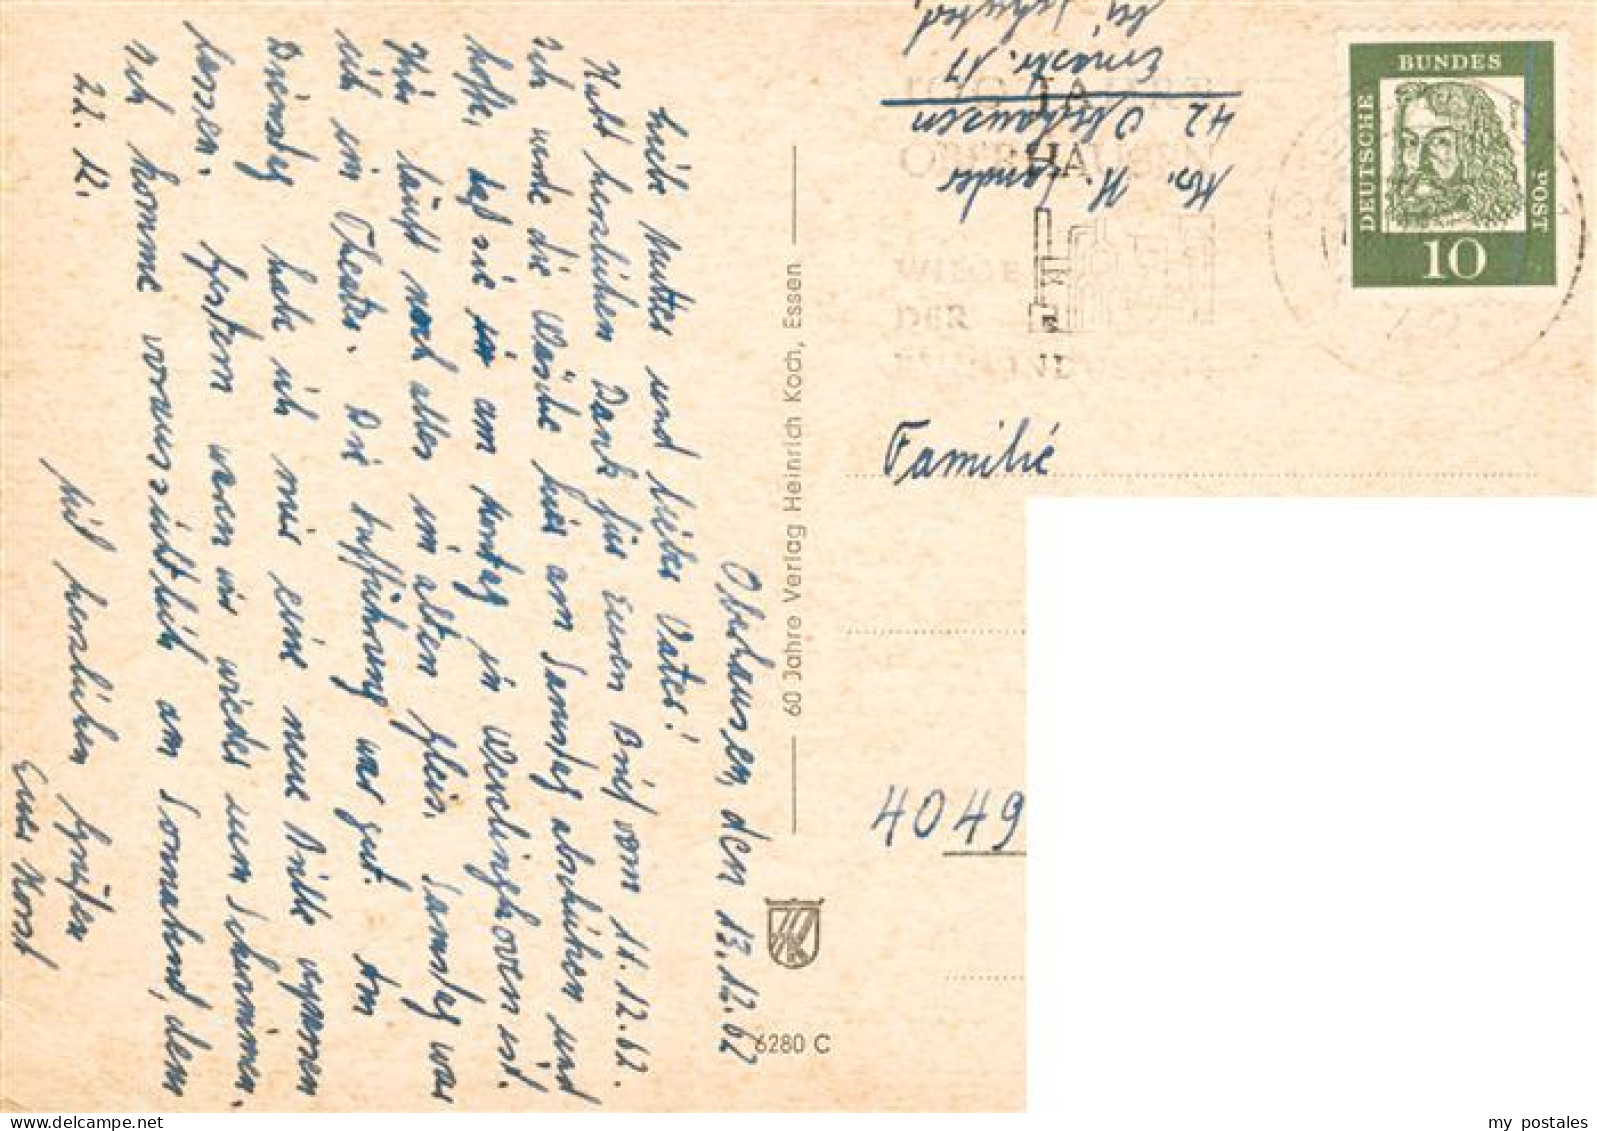 Oberhausen, den 13.12.62
Liebe Mutter und lieber Vater!
Habt herzlichen Dank für Euren Brief vom 11.12.62.
Ich werde die Wäsche hier am Samstag abschicken und
hoffe, daß sie am Montag in Wevelinghoven ist.
Hier läuft noch alles im alten Gleis. Samstag war
ich im Theater. Die Aufführung war gut. Am
Dienstag habe ich mir eine neue Brille verpassen
lassen. Gestern waren wir wieder zum Schwimmen.
Ich komme voraussichtlich am Sonnabend, dem
22. 12.
Mit herzlichen Grüßen
Euer Horst
60 Jahre Verlag Heinrich Koch, Essen
6280 C
H. Sander
42 Oberhausen
17
DEUTSCHE
BUNDES
POST
10
OBERHAUSEN
WIEGE
DER
Familie
4049
my_postales